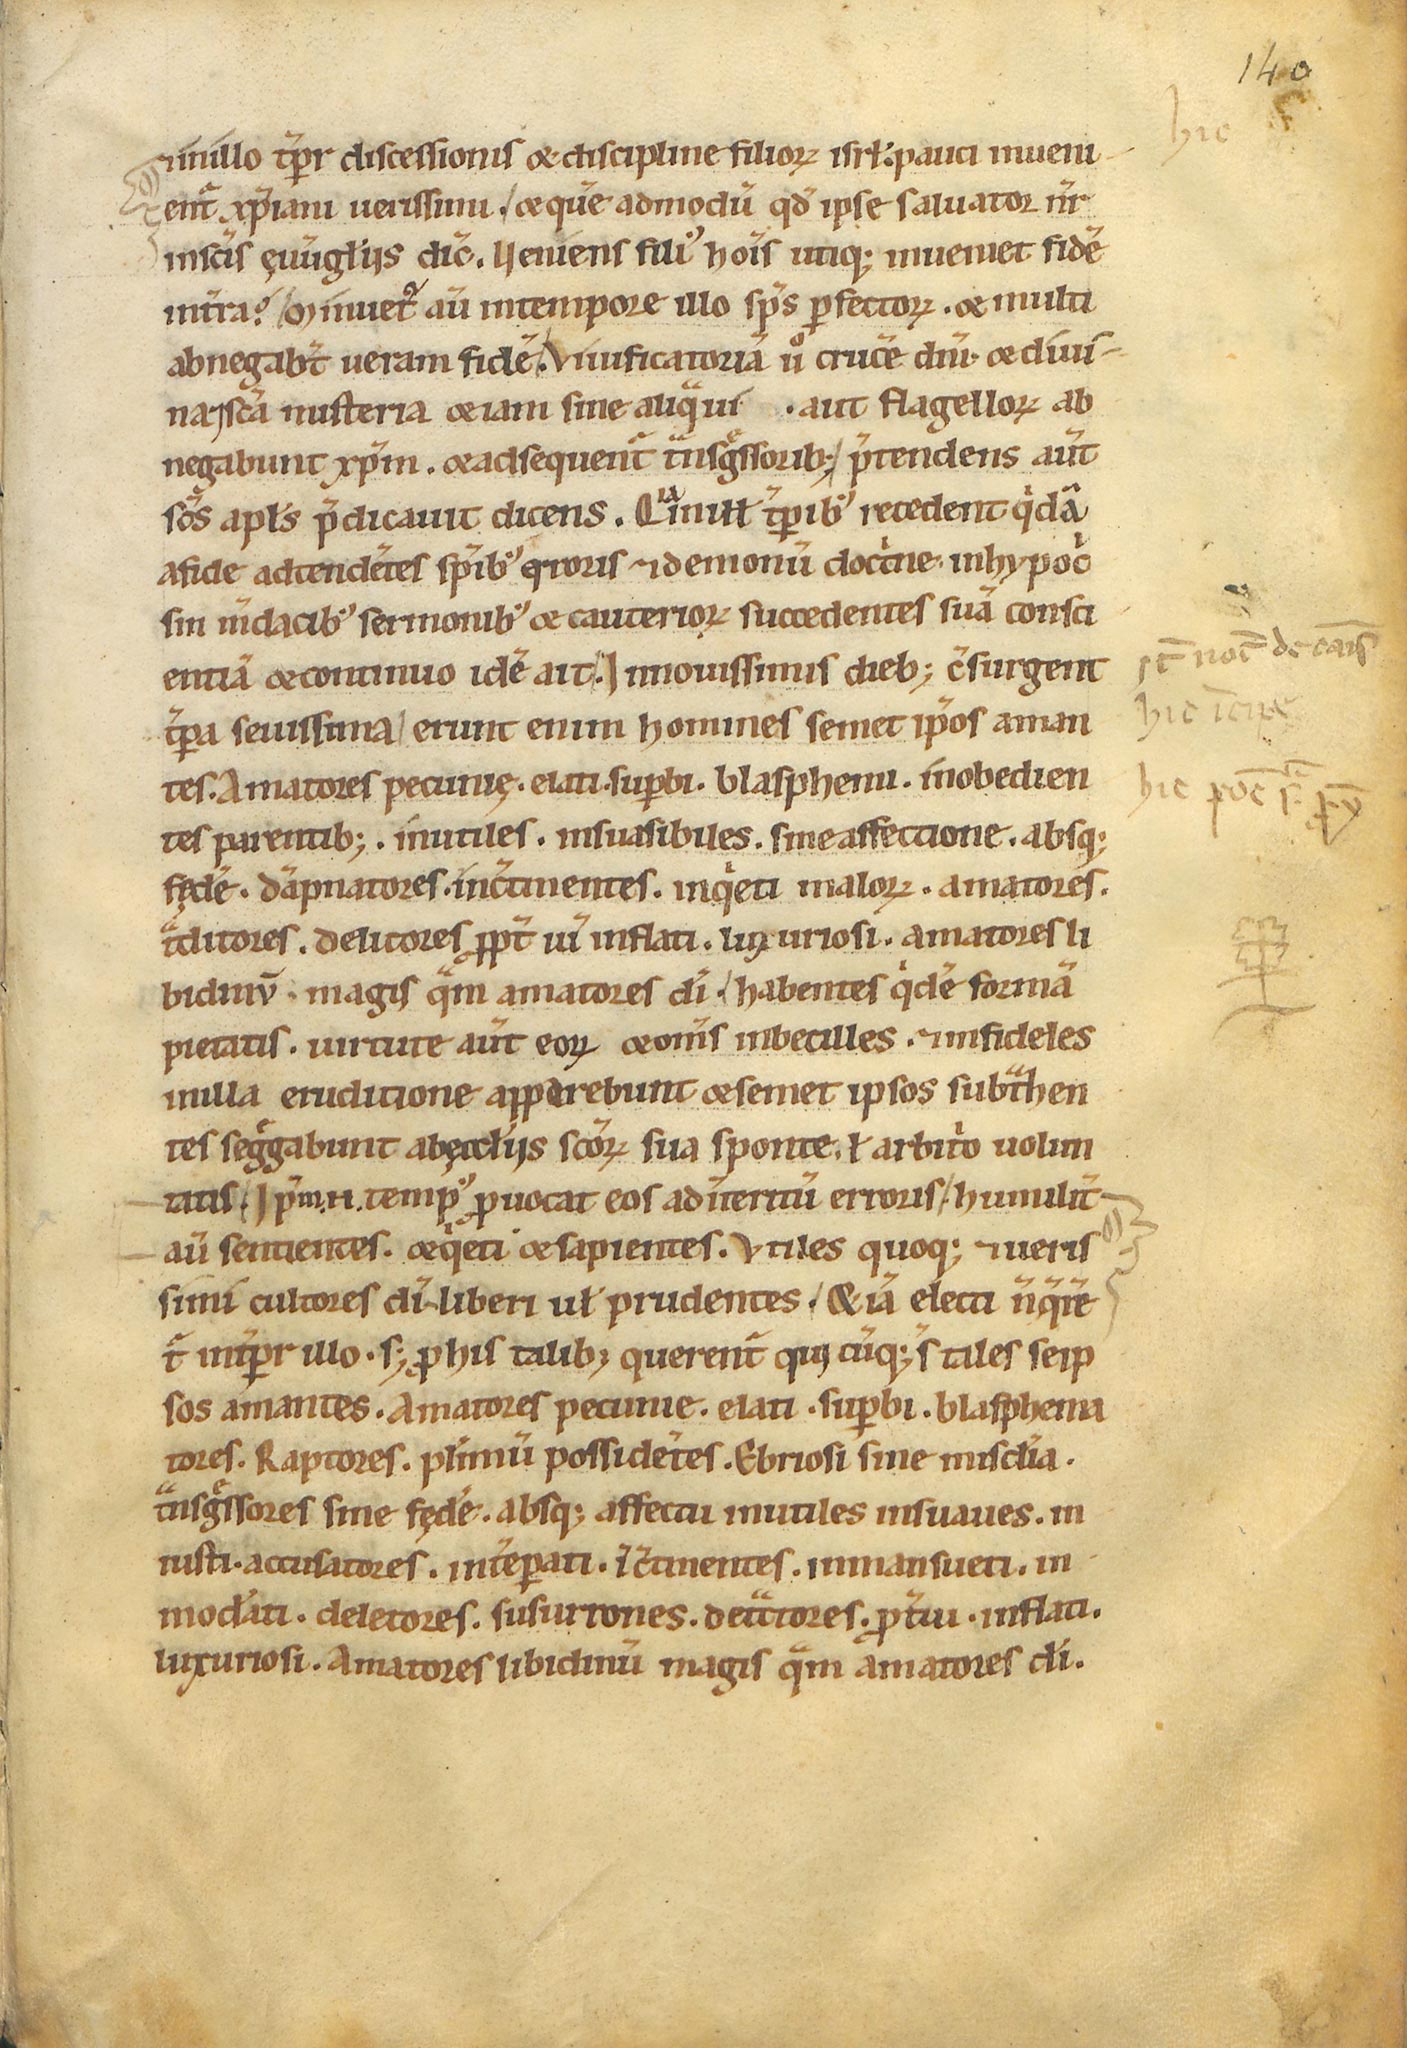 140
hic
inillo tp̄r discessionis & discipline filioꝝ isrł. pauci inueni-
ent̄ xp̄iani uerissimi. & quē admodū qđ ipse saluator nr̄
insc̄is ęuuḡłiis dic̄. Ueniens filiꝰ hois utiqꝫ inueniet fidē
int̄ra? Minuet᷑ aū intempore illo sp̄s ꝑfectoꝝ. & multi
abnegabt̄ ueram fidē. Viuificatoriā uͦ crucē dn̄i. & diui-
na sc̄a misteria & iam sine aliqͣ ui . aut flagelloꝝ ab
negabunt xp̄m. & adsequent̄ tͣnsgͤssoribꝫ p̄tendens aūt
sc̄s apłs p̄dicauit dicens. Qia inill̄ tp̄ibꝰ recedent qͥdā
afide adtendētes sp̄ibꝰ erroris ⁊demoniū doct̄ine. inhypoc̄
sin m̄dacibꝰ sermonibꝰ & cauterioꝝ succedentes suā consci
entiā & continuo idē ait. Innouissimis diebꝫ c̄surgent
tp̄ra seuissima erunt enim homines semet ip̄os aman
tes. Amatores pecunię. elati. suꝑbi. blasphemi. inobedien
tes parentibꝫ. inutiles. insuasibiles. sine affectione. absqꝫ
fędē. dāpnatores. inc̄tinentes. inqͥeti maloꝝ. amatores.
tͣditores. delitores ꝓpt̄ ui inflati. luxuriosi. amatores li
bidinū. magis qͣm amatores di. habentes qͥdē formā
pietatis. uirtute aūt eoꝝ & om̄s inbecilles. ⁊infideles
inilla eruditione apparebunt & semet ipsos subtͣhen
tes segͤgabunt abęccłiis sc̄oꝝ sua sponte. ł arbitͥo uolun
tatis. Ip̄m.n. tempꝰ ꝓuocat eos ad ūteritū erroris humilit̄
aū sentientes. & qͥeti & sapientes. Vtiles quoqꝫ ⁊ueris
simi cultores di. liberi uł prudentes. Qiā electi n̄ qͥre
t̄ intp̄r illo. sꝫ ꝓ his talibꝫ querent̄ qui cūqꝫ s̄ tales seip
sos amantes. Amatores pecunie. elati. suꝑbi. blasphema
tores. Raptores. płimū possidētes. Ebriosi sine misc̄dia.
tͣnsgͤssores sine fędē. absqꝫ affectu inutiles insuaues. in
iusti. accusatores. intēꝑati. īc̄tinentes. inmansueti. in
modāti. deletores. susurrones. detͣctores. ꝓt̄ui. inflati.
luxuriosi. Amatores libidinū magis qͣm amatores di.
hic
hic